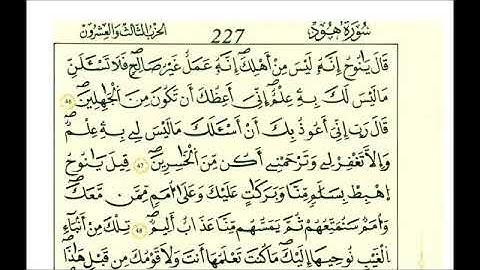 سُورَةُ هُودٍ 227 الحِزْبُ الثَّالِثُ وَالْعِشْرُونَ
قَالَ يَٰنُوحُ إِنَّهُۥ لَيْسَ مِنَ اَهْلِكَۖ إِنَّهُۥ عَمَلٌ غَيْرُ صَٰلِحٖۖ فَلَا تَسْـَٔلَنِّ
مَا لَيْسَ لَكَ بِهِۦ عِلْمٌۖ اِنِّيَ أَعِظُكَ أَن تَكُونَ مِنَ اَلْجَٰهِلِينَۖ
قَالَ رَبِّ إِنِّيَ أَعُوذُ بِكَ أَنَ اَسْـَٔلَكَ مَا لَيْسَ لِے بِهِۦ عِلْمٌۖ
وَإِلَّا تَغْفِرْ لِے وَتَرْحَمْنِےٓ أَكُن مِّنَ اَلْخَٰسِرِينَۖ قِيلَ يَٰنُوحُ
اُهْبِطْ بِسَلَٰمٖ مِّنَّا وَبَرَكَٰتٍ عَلَيْكَ وَعَلَىٰٓ أُمَمٖ مِّمَّن مَّعَكَۖ
وَأُمَمٞ سَنُمَتِّعُهُمْ ثُمَّ يَمَسُّهُم مِّنَّا عَذَابٌ اَلِيمٞۖ تِلْكَ مِنَ اَنۢبَآءِ
اِلْغَيْبِ نُوحِيهَآ إِلَيْكَۖ مَا كُنتَ تَعْلَمُهَآ أَنتَ وَلَا قَوْمُكَ مِن قَبْلِ هَٰذَاۖ